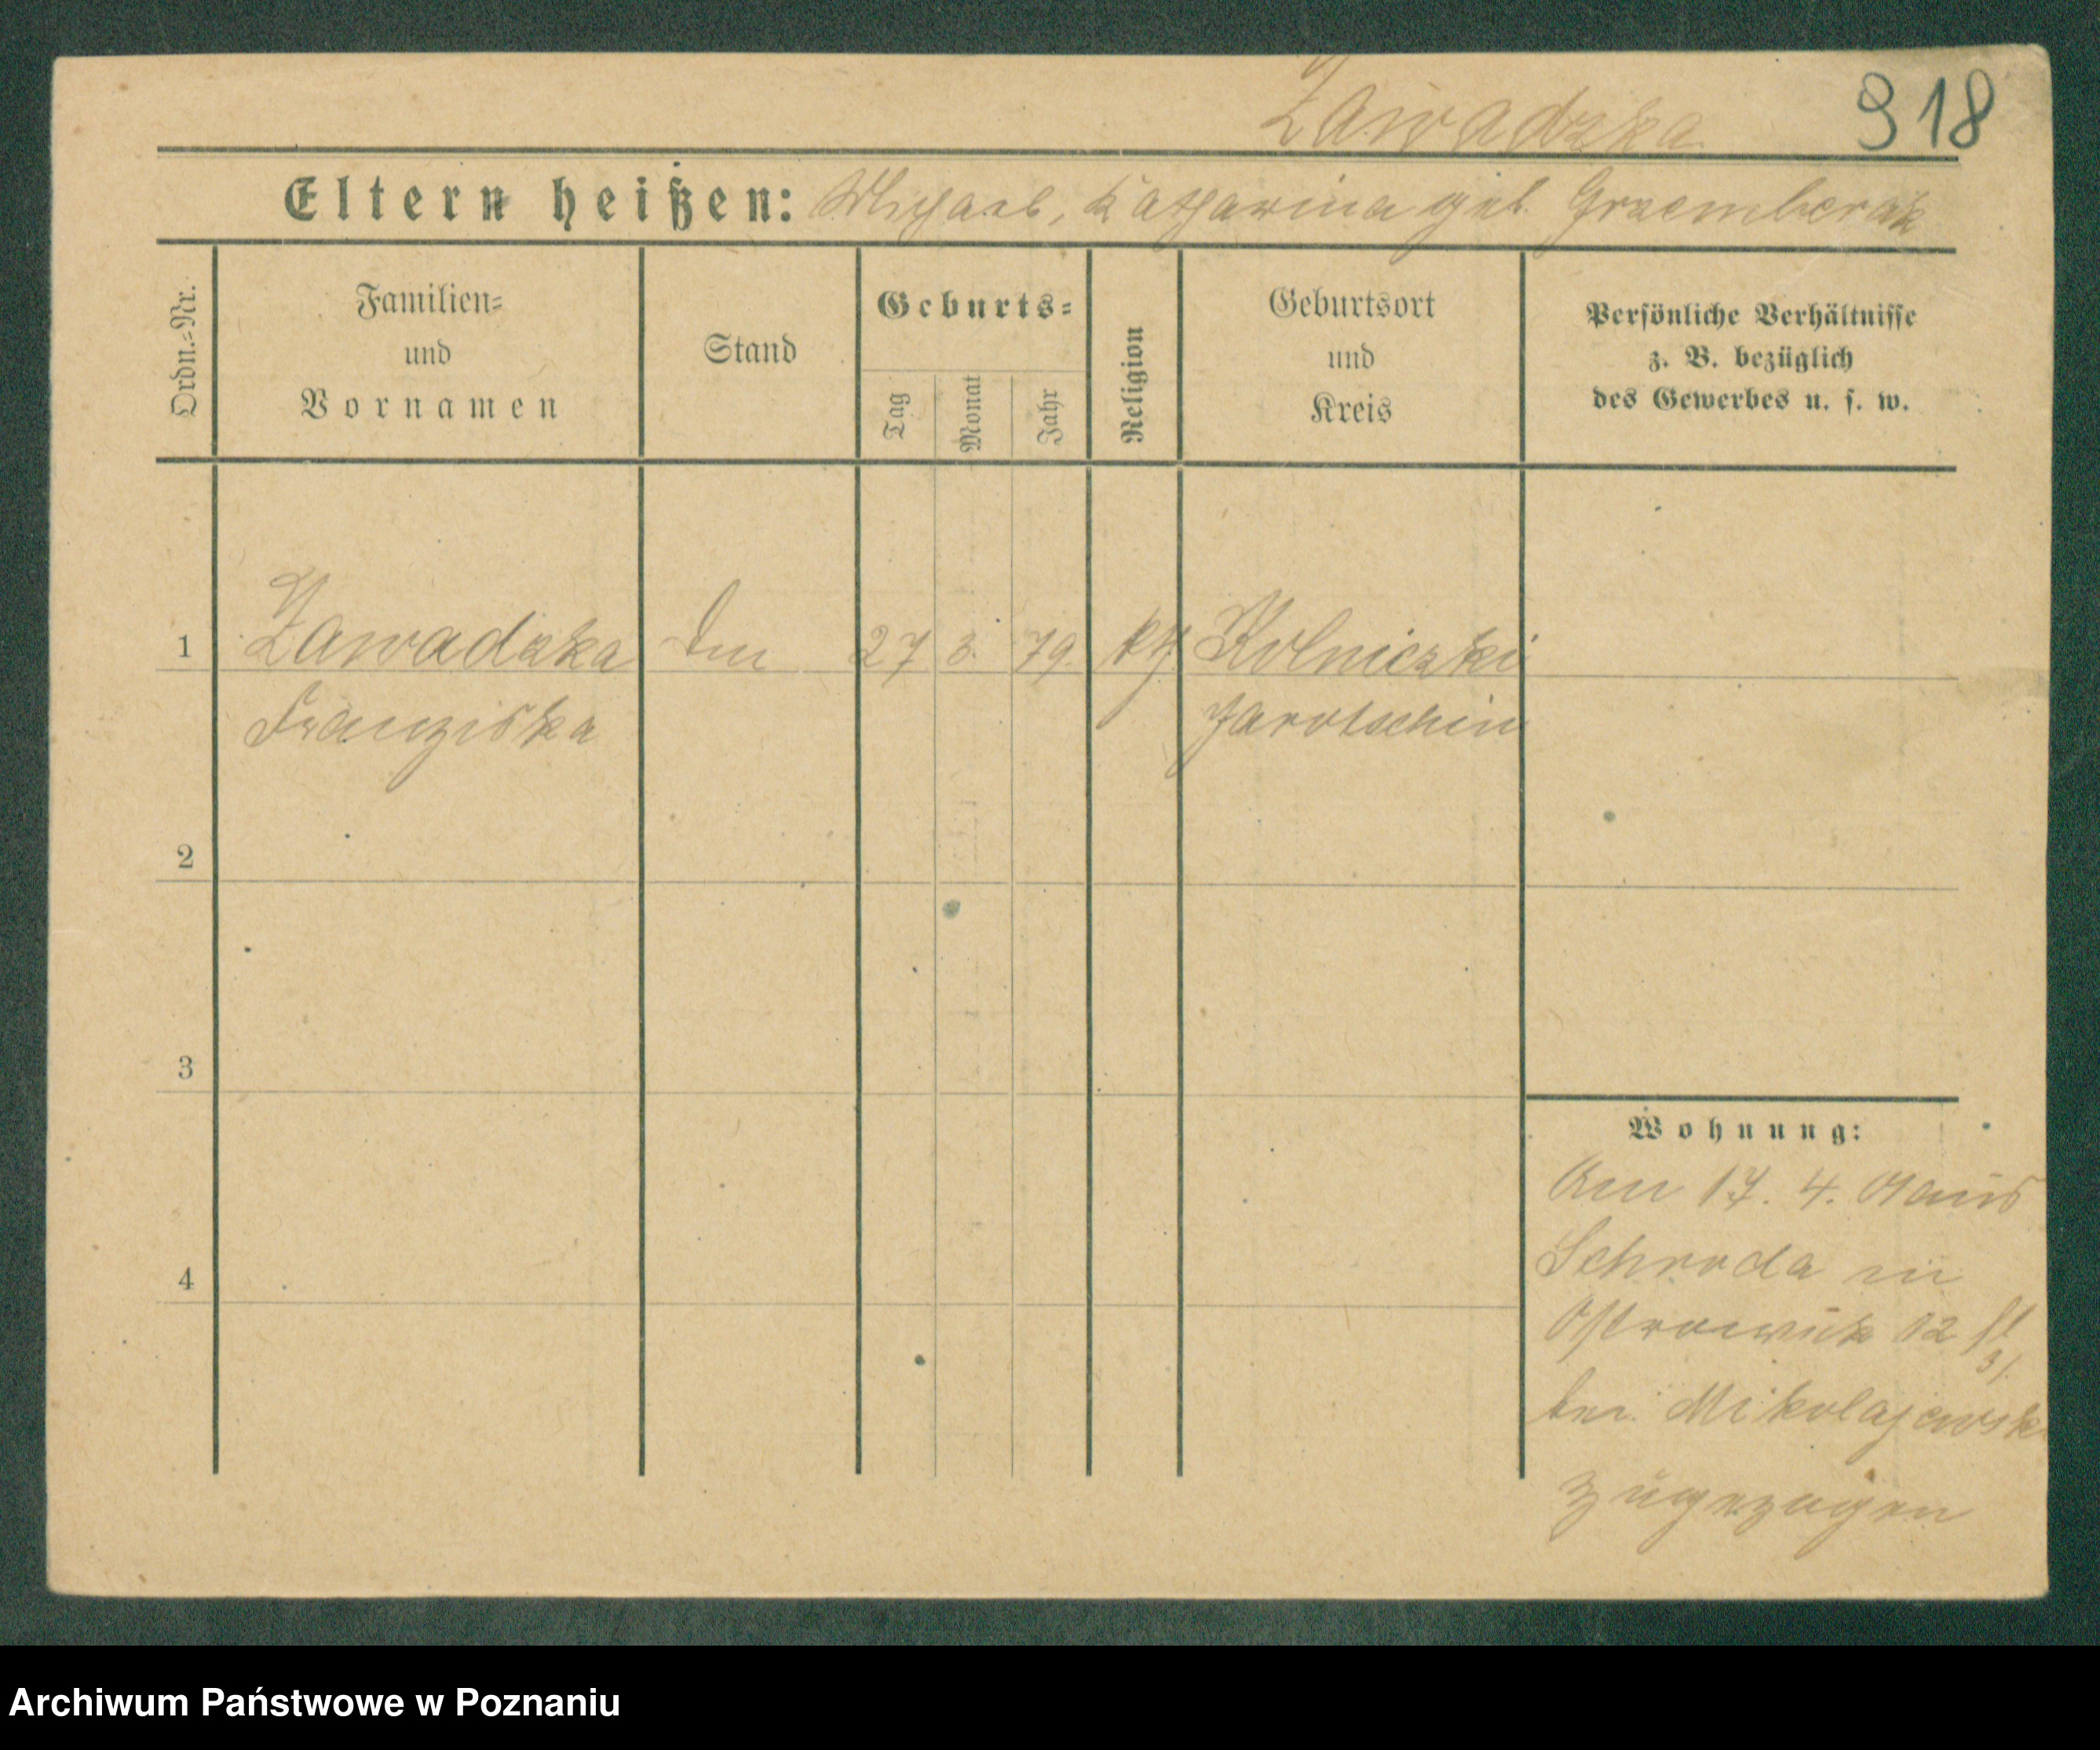 Zawadzka
318
Eltern heißen: Michael, Katharina geb. Grzemberak
Ordn.-Nr.
Familien-
und
Vornamen
Stand
Geburts-
Tag
Monat
Jahr
Religion
Geburtsort
und
Kreis
Persönliche Verhältnisse
z. B. bezüglich
des Gewerbes u. s. w.
1 Zawadzka 27 3. 79. kth Kolniczki
Franziska Jarotschin
2
3
4
Wohnung:
Am 17. 4. 01 aus
Schroda in
Ostrowek 12
bei Mikolajewski
zugezogen
Archiwum Państwowe w Poznaniu